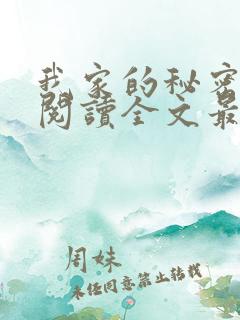 我家的秘密
閱讀全文最
周妹
未经同意禁止转载